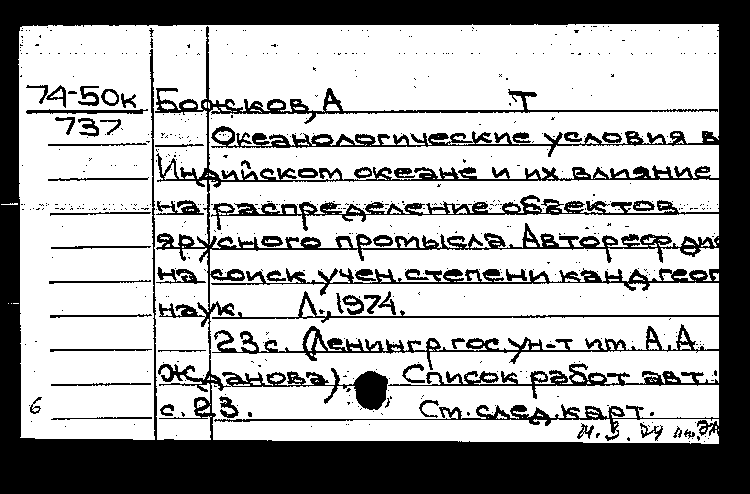 74-50к Божков, А Т
737
Океанологические условия в
Индийском океане и их влияние
на распределение объектов
ярусного промысла. Автореф. дис
на соиск. учен. степени канд. геог
наук. Л., 1974.
23 с. (Ленингр. гос. ун-т им. А. А.
Жданова). Список работ авт.:
с. 23. См. след. карт.
6